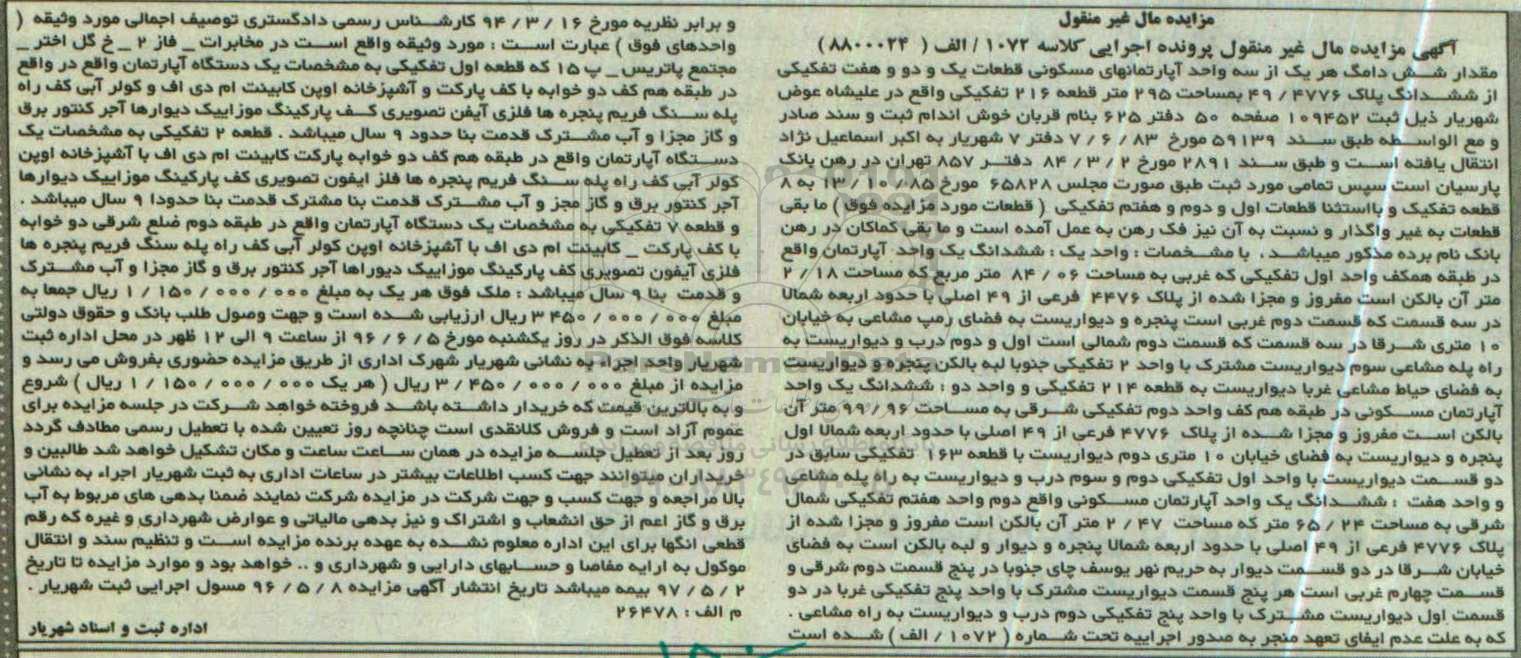 مزایده مال غیر منقول
آگهی مزایده مال غیر منقول پرونده اجرایی کلاسه ۱۰۷۲ / الف ( ۸۸۰۰۰۲۴ )
مقدار شش دانگ هر یک از سه واحد آپارتمانهای مسکونی قطعات یک و دو و هفت تفکیکی
از ششدانگ پلاک ۴۷۷۶ / ۴۹ بمساحت ۲۹۵ متر قطعه ۲۱۶ تفکیکی واقع در علیشاه عوض
شهریار ذیل ثبت ۱۰۹۴۵۲ صفحه ۵۰ دفتر ۶۲۵ بنام قربان خوش اندام ثبت و سند صادر
و مع الواسطه طبق سند ۵۹۱۳۹ مورخ ۸۳ / ۶ / ۷ دفتر ۷ شهریار به اکبر اسماعیل نژاد
انتقال یافته است و طبق سند ۲۸۹۱ مورخ ۲ / ۳ / ۸۴ دفتر ۸۵۷ تهران در رهن بانک
پارسیان است سپس تمامی مورد ثبت طبق صورت مجلس ۶۵۸۲۸ مورخ ۸۵ / ۱۰ / ۱۳ به ۸
قطعه تفکیک و بااستثنا قطعات اول و دوم و هفتم تفکیکی ( قطعات مورد مزایده فوق ) ما بقی
قطعات به غیر واگذار و نسبت به آن نیز فک رهن به عمل آمده است و ما بقی کماکان در رهن
بانک نام برده مذکور میباشد . با مشخصات : واحد یک : ششدانگ یک واحد آپارتمان واقع
در طبقه همکف واحد اول تفکیکی که غربی به مساحت ۰۶ / ۸۴ متر مربع که مساحت ۱۸ / ۲
متر آن بالکن است مفروز و مجزا شده از پلاک ۴۴۷۶ فرعی از ۴۹ اصلی با حدود اربعه شمالا
در سه قسمت که قسمت دوم غربی است پنجره و دیواریست به فضای رمپ مشاعی به خیابان
۱۰ متری شرقا در سه قسمت که قسمت دوم شمالی است اول و دوم درب و دیواریست به
راه پله مشاعی سوم دیواریست مشترک با واحد ۲ تفکیکی جنوبا لبه بالکن پنجره و دیواریست
به فضای حیاط مشاعی غربا دیواریست به قطعه ۲۱۴ تفکیکی و واحد دو : ششدانگ یک واحد
آپارتمان مسکونی در طبقه هم کف واحد دوم تفکیکی شرقی به مساحت ۹۶ / ۹۹ متر آن
بالکن است مفروز و مجزا شده از پلاک ۴۷۷۶ فرعی از ۴۹ اصلی با حدود اربعه شمالا اول
پنجره و دیواریست به فضای خیابان ۱۰ متری دوم دیواریست با قطعه ۱۶۳ تفکیکی سابق در
دو قسمت دیواریست با واحد اول تفکیکی دوم و سوم درب و دیواریست به راه پله مشاعی
و واحد هفت : ششدانگ یک واحد آپارتمان مسکونی واقع دوم واحد هفتم تفکیکی شمال
شرقی به مساحت ۲۴ / ۶۵ متر که مساحت ۴۷ / ۲ متر آن بالکن است مفروز و مجزا شده از
پلاک ۴۷۷۶ فرعی از ۴۹ اصلی با حدود اربعه شمالا پنجره و دیوار و لبه بالکن است به فضای
خیابان شرقا در دو قسمت دیوار به حریم نهر یوسف چای جنوبا در پنج قسمت دوم شرقی و
قسمت چهارم غربی است هر پنج قسمت دیواریست مشترک با واحد پنج تفکیکی غربا در دو
قسمت اول دیواریست مشترک با واحد پنج تفکیکی دوم درب و دیواریست به راه مشاعی .
که به علت عدم ایفای تعهد منجر به صدور اجراییه تحت شماره ( ۱۰۷۲ / الف ) شده است
و برابر نظریه مورخ ۱۶ / ۳ / ۹۴ کارشناس رسمی دادگستری توصیف اجمالی مورد وثیقه (
واحدهای فوق ) عبارت است : مورد وثیقه واقع است در مخابرات _ فاز ۲ _ خ گل اختر _
مجتمع پاتریس _ پ ۱۵ که قطعه اول تفکیکی به مشخصات یک دستگاه آپارتمان واقع در واقع
در طبقه هم کف دو خوابه با کف پارکت و آشپزخانه اوپن کابینت ام دی اف و کولر آبی کف راه
پله سنگ فریم پنجره ها فلزی آیفن تصویری کف پارکینگ موزاییک دیوارها آجر کنتور برق
و گاز مجزا و آب مشترک قدمت بنا حدود ۹ سال میباشد . قطعه ۲ تفکیکی به مشخصات یک
دستگاه آپارتمان واقع در طبقه هم کف دو خوابه پارکت کابینت ام دی اف با آشپزخانه اوپن
کولر آبی کف راه پله سنگ فریم پنجره ها فلز ایفون تصویری کف پارکینگ موزاییک دیوارها
آجر کنتور برق و گاز مجز و آب مشترک قدمت بنا مشترک قدمت بنا حدودا ۹ سال میباشد .
و قطعه ۷ تفکیکی به مشخصات یک دستگاه آپارتمان واقع در طبقه دوم ضلع شرقی دو خوابه
با کف پارکت _ کابینت ام دی اف با آشپزخانه اوپن کولر آبی کف راه پله سنگ فریم پنجره ها
فلزی آیفون تصویری کف پارکینگ موزاییک دیوراها آجر کنتور برق و گاز مجزا و آب مشترک
و قدمت بنا ۹ سال میباشد : ملک فوق هر یک به مبلغ ۰۰۰ / ۰۰۰ / ۱۵۰ / ۱ ریال جمعا به
مبلغ ۰۰۰ / ۰۰۰ / ۴۵۰ ۳ ریال ارزیابی شده است و جهت وصول طلب بانک و حقوق دولتی
کلاسه فوق الذکر در روز یکشنبه مورخ ۵ / ۶ / ۹۶ از ساعت ۹ الی ۱۲ ظهر در محل اداره ثبت
شهریار واحد اجراء به نشانی شهریار شهرک اداری از طریق مزایده حضوری بفروش می رسد و
مزایده از مبلغ ۰۰۰ / ۰۰۰ / ۴۵۰ / ۳ ریال ( هر یک ۰۰۰ / ۰۰۰ / ۱۵۰ / ۱ ریال ) شروع
و به بالاترین قیمت که خریدار داشته باشد فروخته خواهد شرکت در جلسه مزایده برای
عموم آزاد است و فروش کلانقدی است چنانچه روز تعیین شده با تعطیل رسمی مطادف گردد
روز بعد از تعطیل جلسه مزایده در همان ساعت ساعت و مکان تشکیل خواهد شد طالبین و
خریداران میتوانند جهت کسب اطلاعات بیشتر در ساعات اداری به ثبت شهریار اجراء به نشانی
بالا مراجعه و جهت کسب و جهت شرکت در مزایده شرکت نمایند ضمنا بدهی های مربوط به آب
برق و گاز اعم از حق انشعاب و اشتراک و نیز بدهی مالیاتی و عوارض شهرداری و غیره که رقم
قطعی انگها برای این اداره معلوم نشده به عهده برنده مزایده است و تنظیم سند و انتقال
موکول به ارایه مفاصا و حسابهای دارایی و شهرداری و .. خواهد بود و موارد مزایده تا تاریخ
۲ / ۵ / ۹۷ بیمه میباشد تاریخ انتشار آگهی مزایده ۸ / ۵ / ۹۶ مسول اجرایی ثبت شهریار .
م الف : ۲۶۴۷۸
اداره ثبت و اسناد شهریار